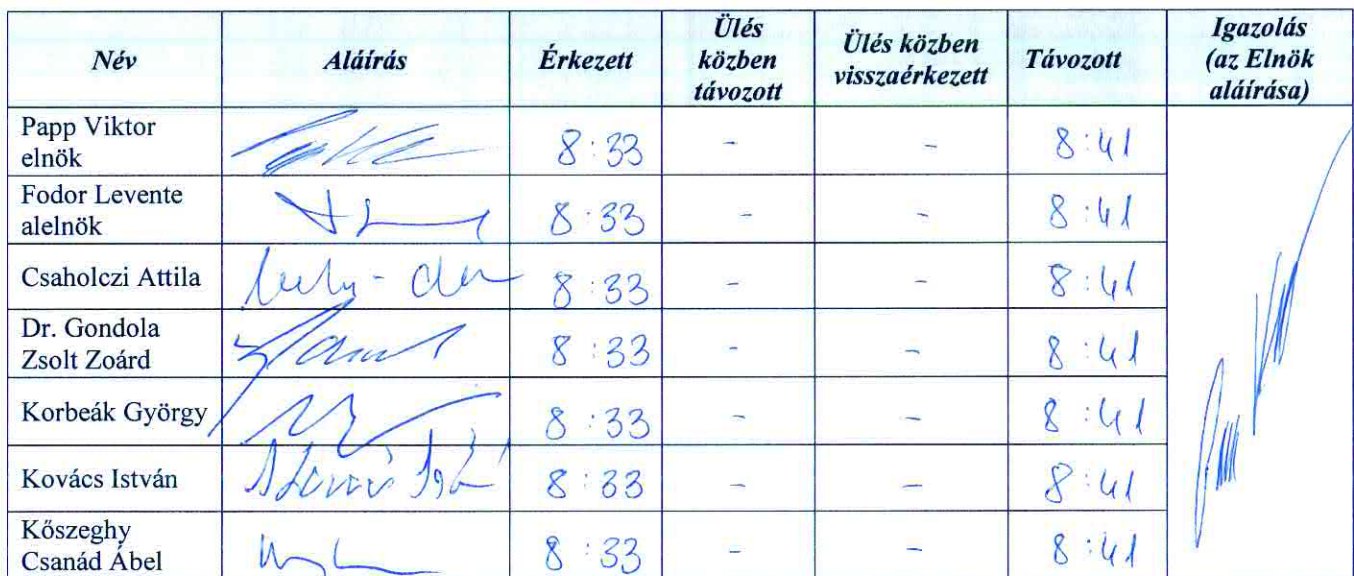 Név Aláírás Érkezett Ülés közben távozott Ülés közben visszaérkezett Távozott Igazolás (az Elnök aláírása)
Papp Viktor elnök 8:33 - - 8:41
Fodor Levente alelnök 8:33 - - 8:41
Csaholczi Attila 8:33 - - 8:41
Dr. Gondola Zsolt Zoárd 8:33 - - 8:41
Korbeák György 8:33 - - 8:41
Kovács István 8:33 - - 8:41
Kőszeghy Csanád Ábel 8:33 - - 8:41